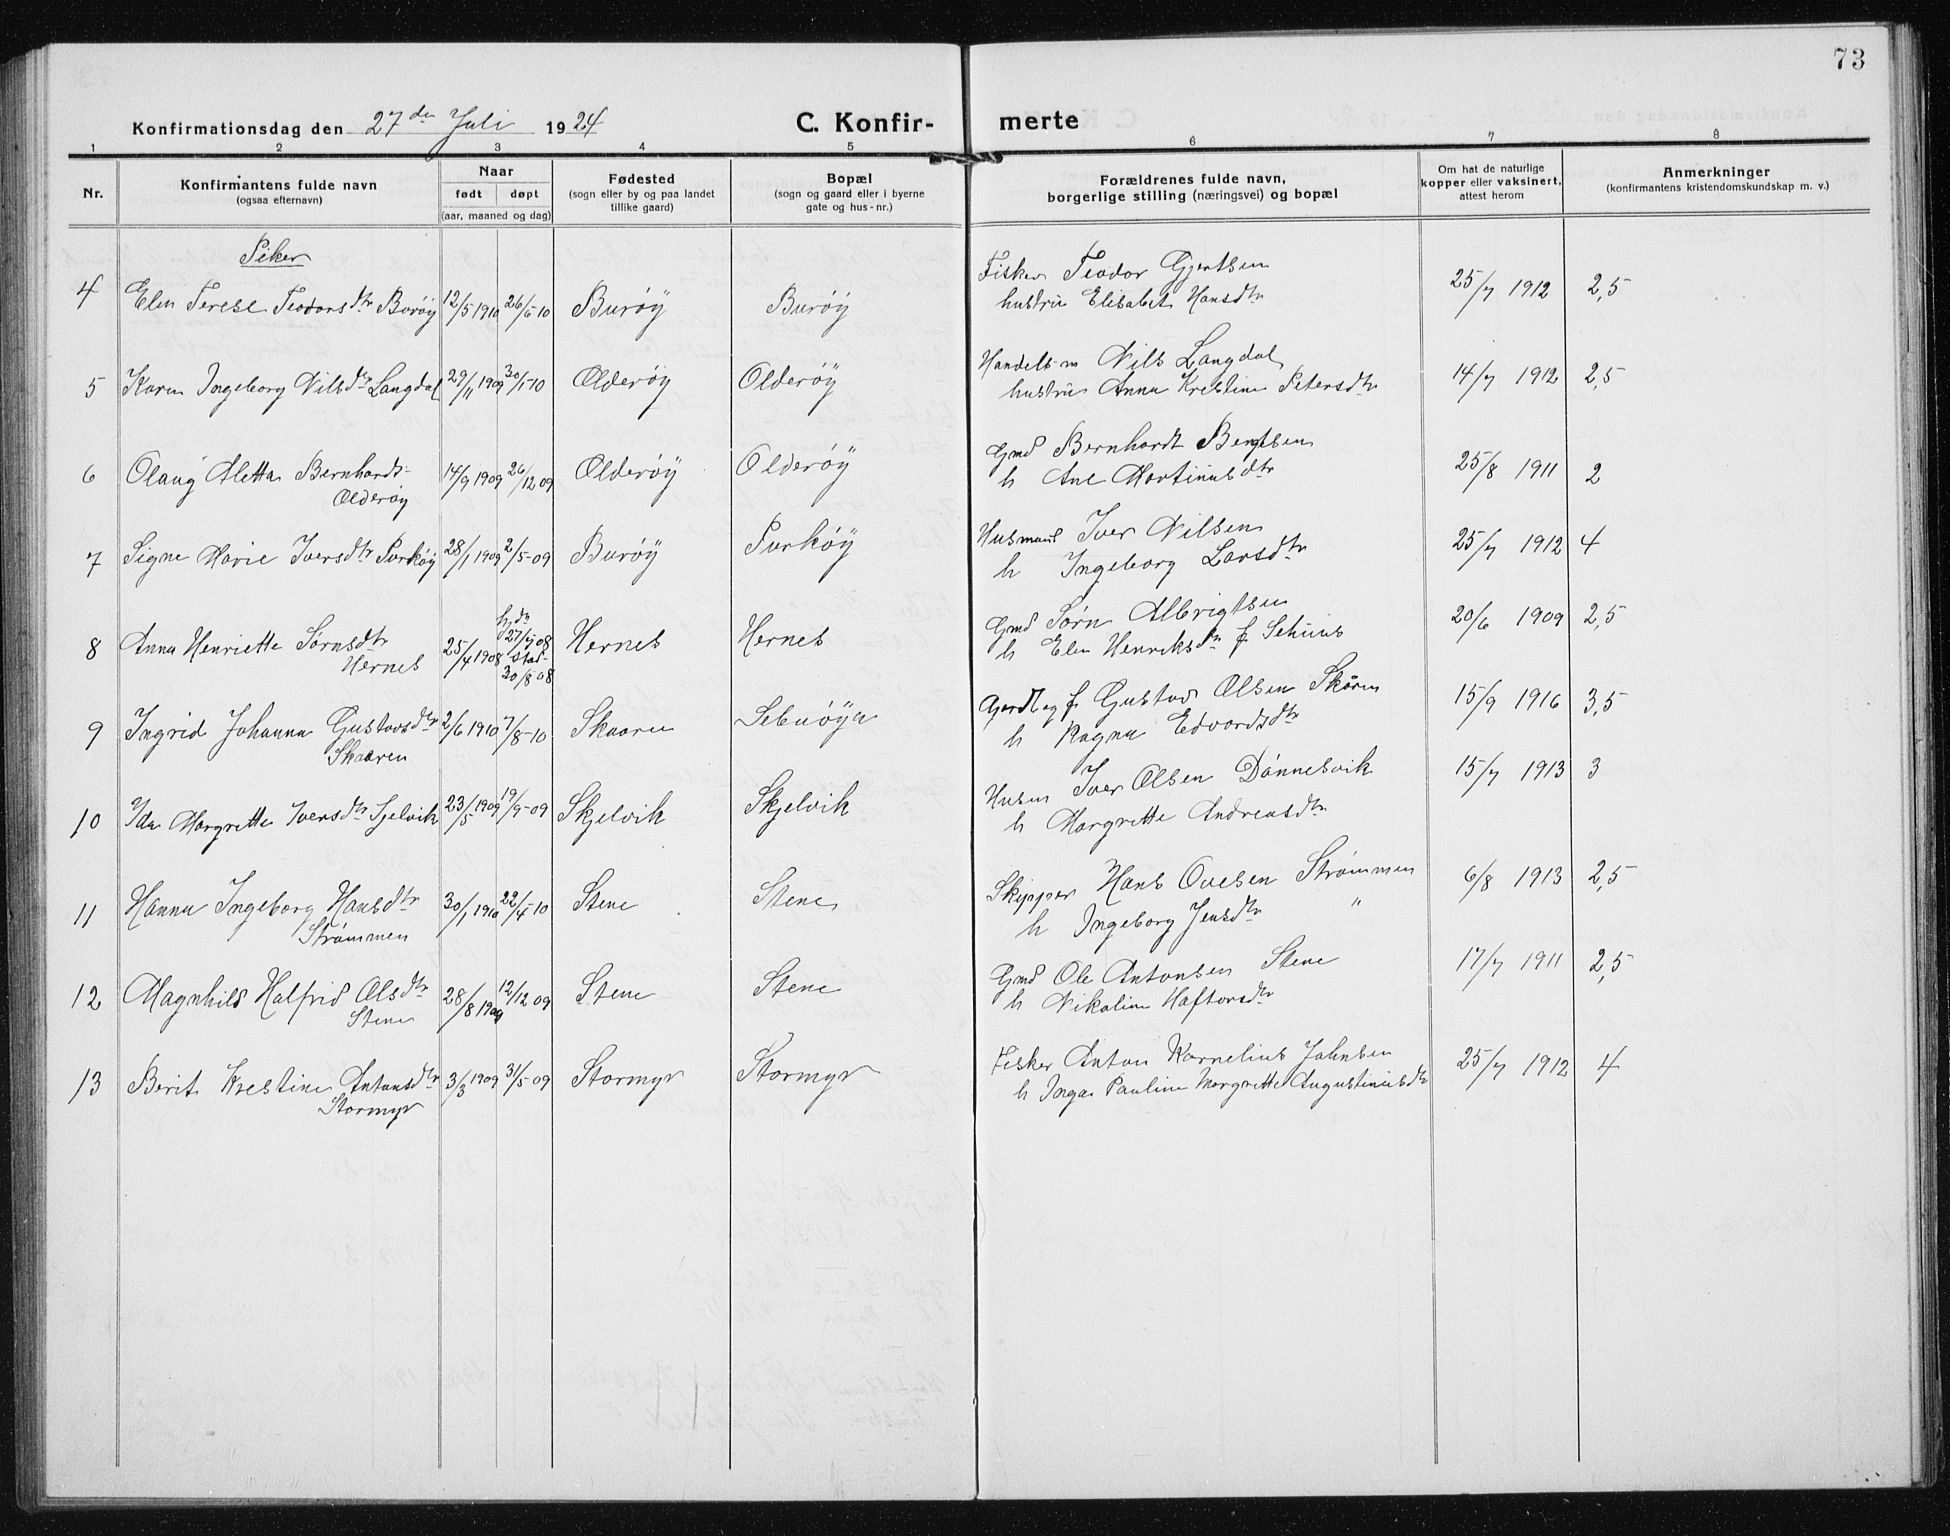 73
Konfirmationsdag den 27de Juli 1924 C. Konfir- merte
1 2 3 4 5 6 7 8
Nr. Konfirmantens fulde navn (ogsaa efternavn) Naar født døpt (aar, maaned og dag) Fødested (sogn eller by og paa landet tillike gaard) Bopæl (sogn og gaard eller i byerne gate og hus-nr.) Forældrenes fulde navn, borgerlige stilling (næringsvei) og bopæl Om hat de naturlige kopper eller vaksinert, attest herom Anmerkninger (konfirmantens kristendomskundskap m. v.)
Piker
4 Elen Terese Teodorsdtr Burøy 12/5 1910 26/6 10 Burøy Burøy Fisker Teodor Gjertsen 25/7 1912 2,5
hustru Elisabet Hansdtr
5 Karen Ingeborg Nilsdtr Langdal 29/11 1909 30/1-10 Olderøy Olderøy Handelsm Nils Langdal 14/7 1912 2,5
hustru Anna Kristine Petersdtr
6 Olaug Aletta Bernhards- 14/9 1909 26/12 09 Olderøy Olderøy Gmd Bernhardt Bentsen 25/8 1911 2
Olderøy h Ane Martinusdtr
7 Signe Marie Iversdtr Purkøy 28/1 1909 2/5-09 Burøy Purkøy Husmand Iver Nilsen 25/7 1912 4
h Ingeborg Larsdtr
8 Anna Henriette Sørnsdtr 25/4 1908 hjdp 27/5 08 Hernes Hernes Gmd Sørn Albrigtsen 20/6 1909 2,5
Hernes stad- 30/8 08 h Elen Henriksdtr f.
9 Ingrid Johanna Gustavsdtr 2/6 1910 7/8-10 Skaaren Gustav Olsen Skåren 15/9 1916 3,5
Skaaren h Ragna Edvardsdtr
10 Ida Margrette Iversdtr Sjelvik 23/5 1909 19/9-09 Skjelvik Skjelvik Husm Iver Olsen Dønnesvik 15/7 1913 3
h Margrette Andreasdtr
11 Hanna Ingeborg Hansdtr 30/1 1910 22/4-10 Stene Stene Skipper Hans Ovesen Strømmen 6/8 1913 2,5
Strømmen h Ingeborg Jensdtr "
12 Magnhild Halfrid Olsdtr 28/8 1909 12/12 09 Stene Stene Gmd Ole Antonsen Stene 17/7 1911 2,5
Stene h Nikoline Haftorsdtr
13 Berit Kristine Antonsdtr 3/3 1909 31/5 09 Stormyr Stormyr Fisker Anton Kornelius Johnsen 25/7 1912 4
Stormyr h Inga Pauline Margrette Augustinusdtr